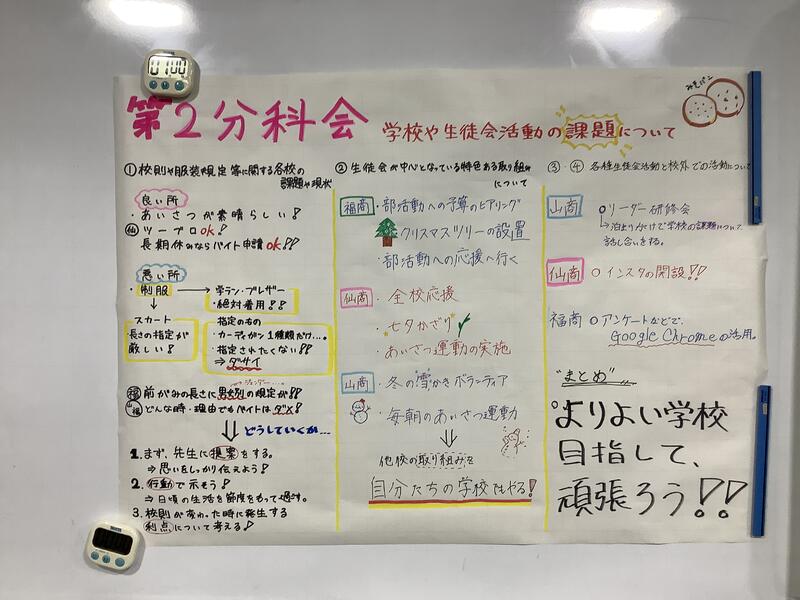 01:00
第2分科会 学校や生徒会活動の課題について
みそパン
① 校則や服装規定等に関する各校の
課題や現状
良い所
・あいさつが素晴らしい!
仙 ツーブロok!
長期休みならバイト申請ok!!
悪い所
・制服 → 学ラン・ブレザー
・絶対着用!!
↓
スカート
長さの指定が
厳しい!
指定のもの
・カーディガン1種類だけ...。
・指定されたくない!!
⇒ダサイ
ジェンダー...
福 前がみの長さに男女別の規定が!!
山・福 どんな時・理由でもバイトはダメ!
⇓ どうしていくか...
1. まず、先生に提案をする。
⇒思いをしっかり伝えよう!
2. 行動で示そう!
⇒日頃の生活を節度をもって過す。
3. 校則が変わった時に発生する
利点について考える!
② 生徒会が中心となっている特色ある取り組み
について
福商 ・部活動への予算のヒアリング
クリスマスツリーの設置
・部活動への応援へ行く
仙商 ・全校応援
・七夕かざり
・あいさつ運動の実施
山商 ・冬の雪かきボランティア
・毎朝のあいさつ運動
⇓
他校の取り組みを
自分たちの学校でもやる!
③・④ 各種生徒会活動と校外での活動について
山商 ○リーダー研修会
↳泊まりがけで学校の課題について
話し合いをする。
仙商 ○インスタの開設!!
福商 ○アンケートなどで、
Google Chromeの活用。
"まとめ"
よりよい学校
目指して、
頑張ろう!!